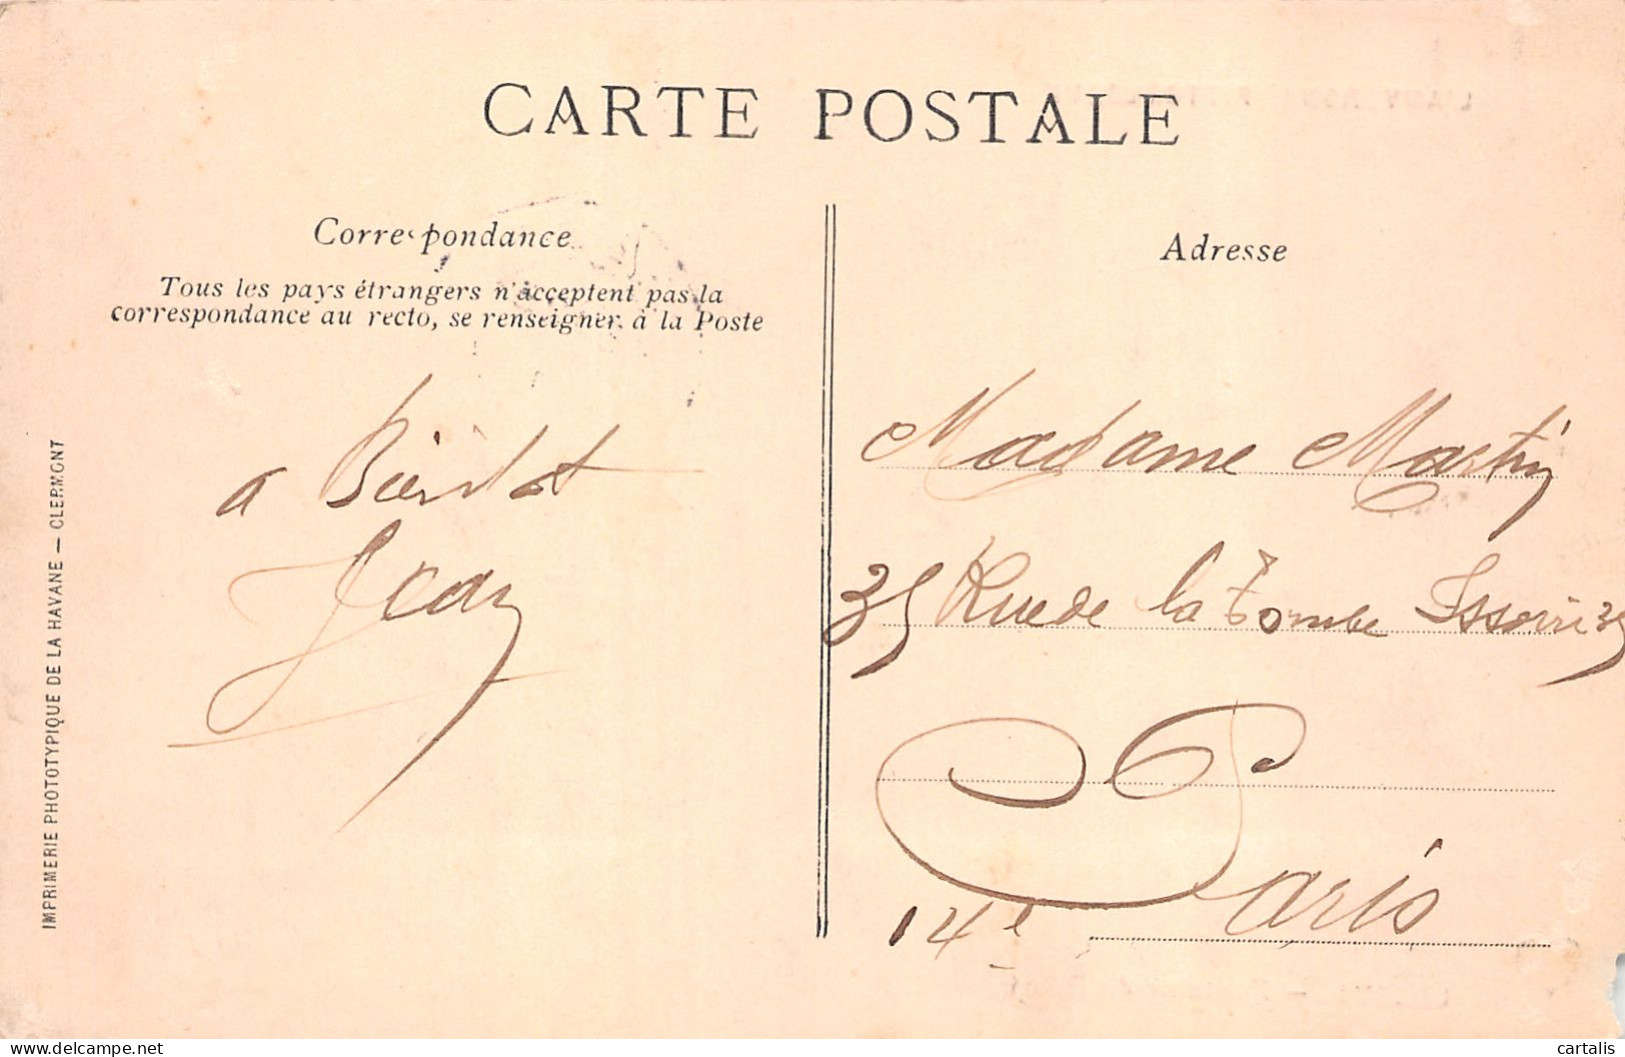 CARTE POSTALE
Correspondance
Tous les pays étrangers n'acceptent pas la
correspondance au recto, se renseigner à la Poste
a Bientot
Jean
IMPRIMERIE PHOTOTYPIQUE DE LA HAVANE — CLERMONT
Adresse
Madame Martin
35 Rue de la Tombe Issoire 35
Paris
14e
delcampe.net
cartalis